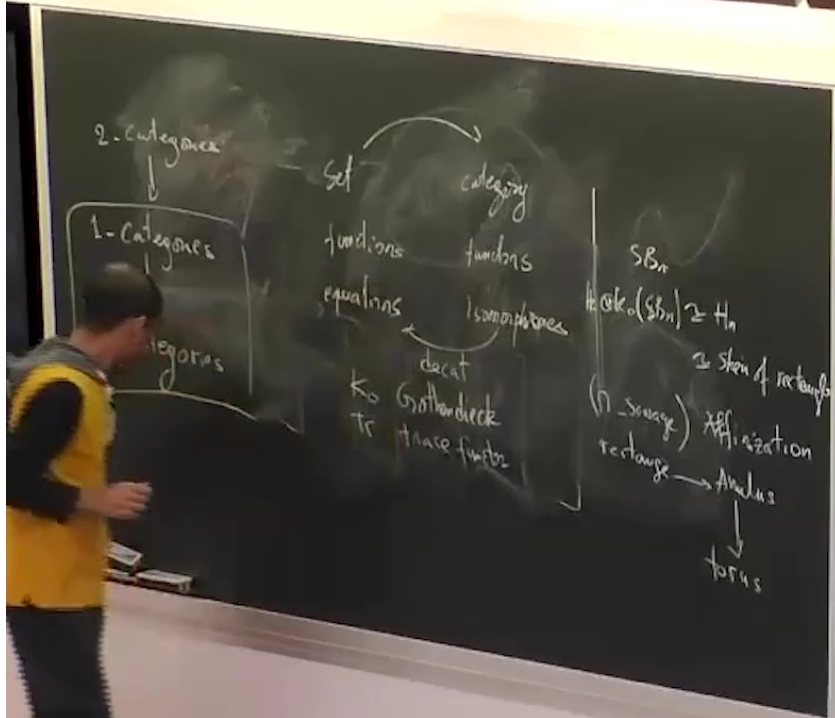 2-Categories
1-Categories
egories
Set category
functions functors
equations Isomorphisms
decat
K₀ Grothendieck
Tr trace functor
SBₙ
K₀(SBₙ) ≃ Hₙ
≃ Skein of rectangle
Affinization
rectange → Anulus
torus